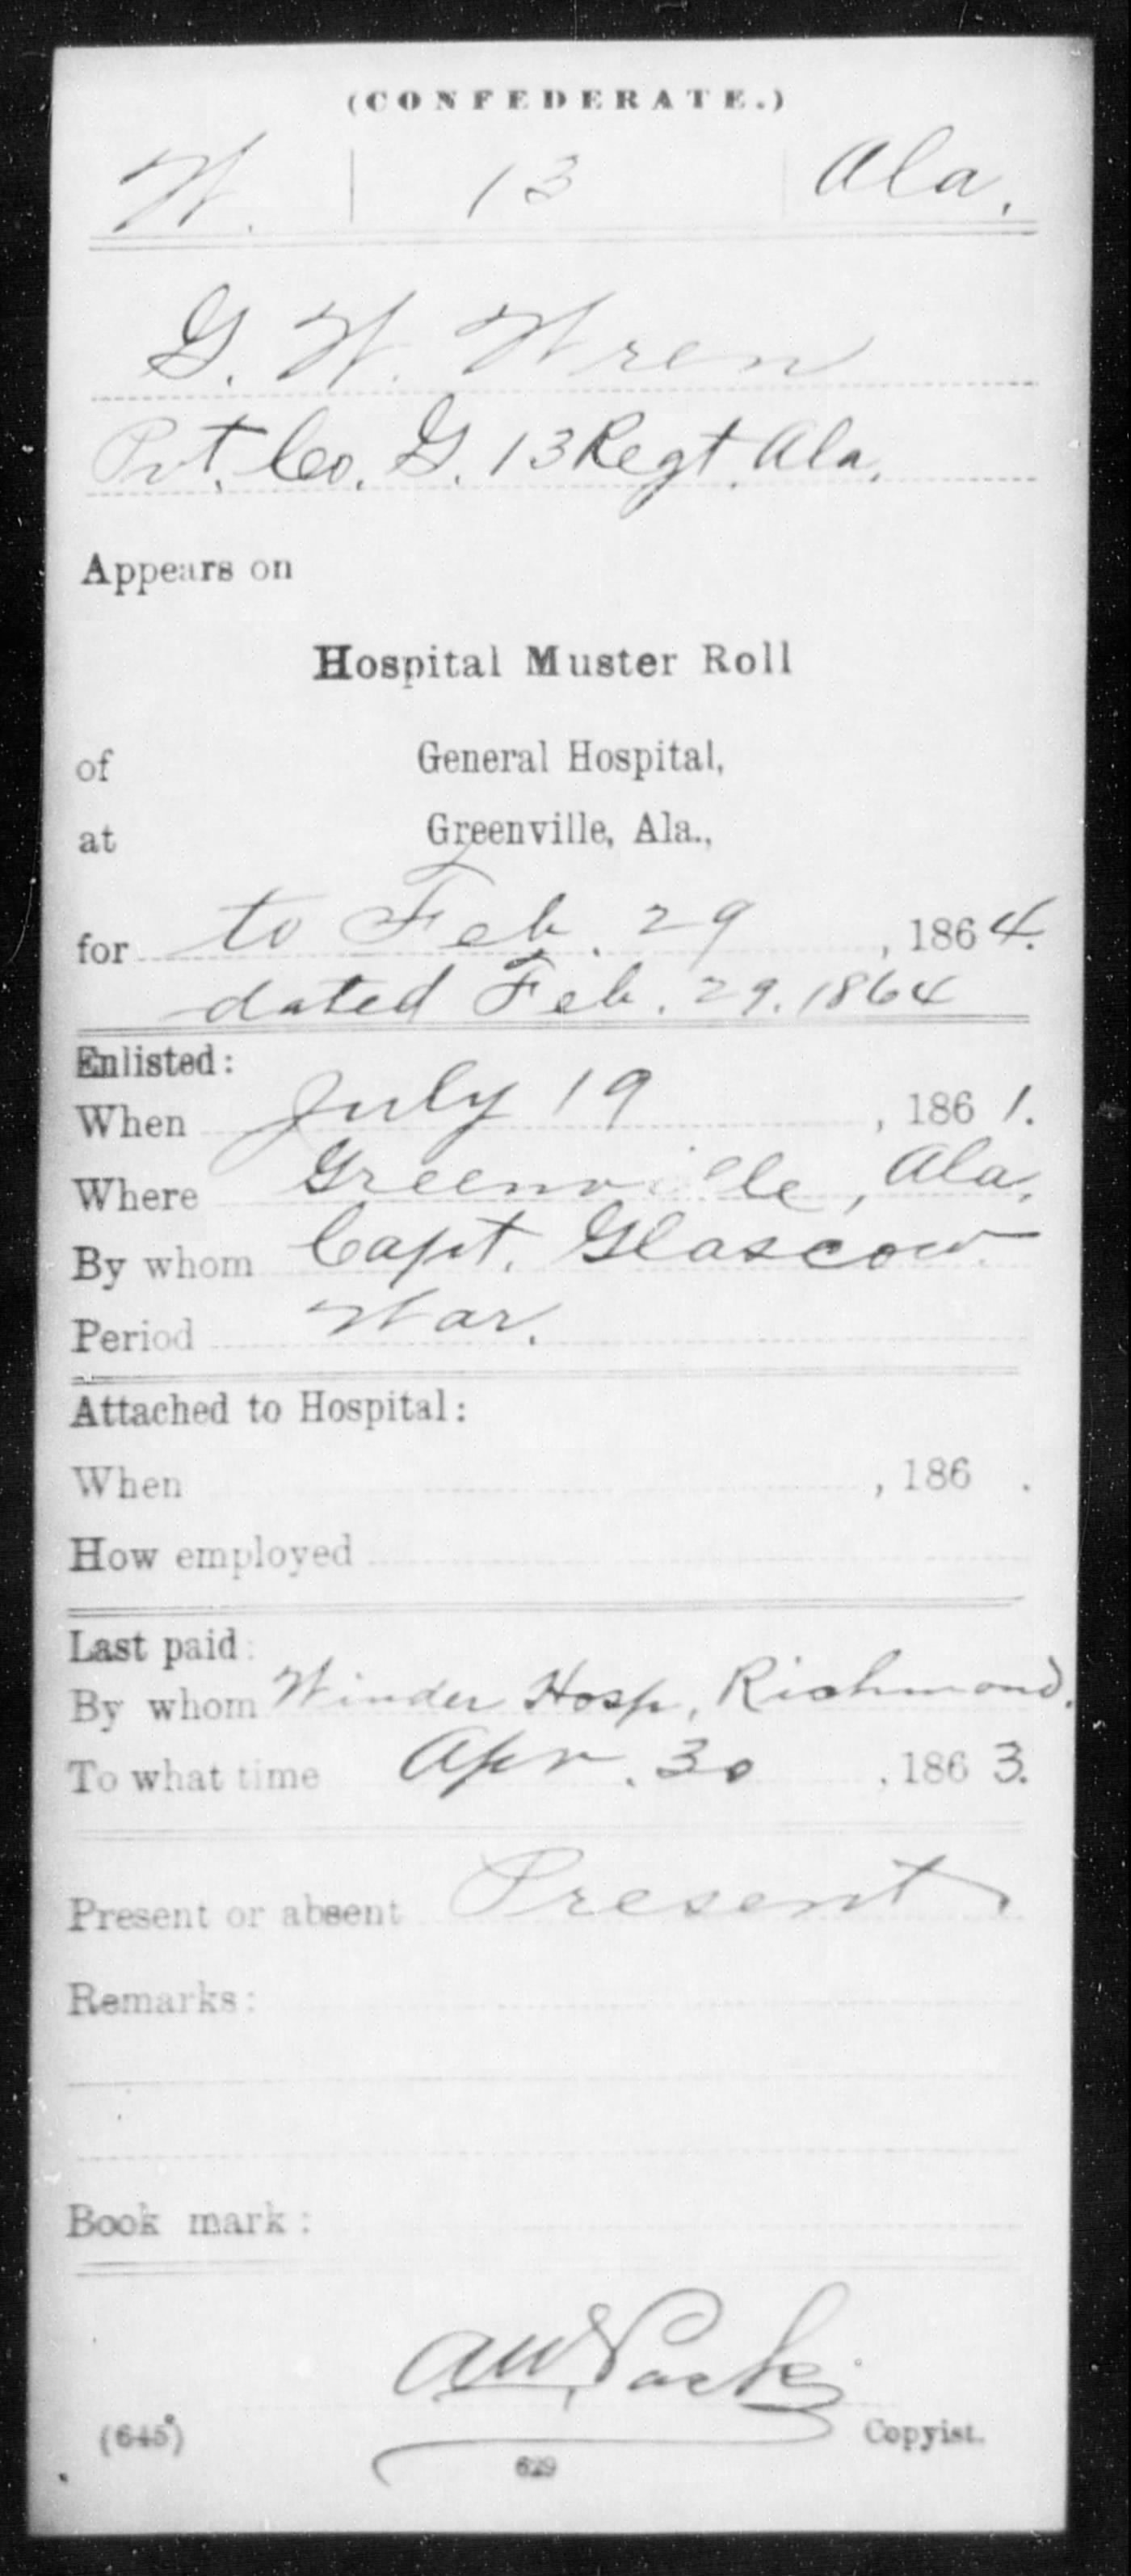 (CONFEDERATE.)
W. | 13 | Ala.
G. W. Wren
Pvt. Co. G. 13 Regt. Ala.
Appears on
Hospital Muster Roll
of General Hospital,
at Greenville, Ala.,
for to Feb. 29, 1864.
dated Feb. 29. 1864
Enlisted:
When July 19, 1861.
Where Greenville, Ala.
By whom Capt. Glascow
Period War.
Attached to Hospital:
When , 186 .
How employed
Last paid:
By whom Winder Hosp, Richmond.
To what time Apr. 30, 1863.
Present or absent Present
Remarks:
Book mark:
(645) Copyist.
629